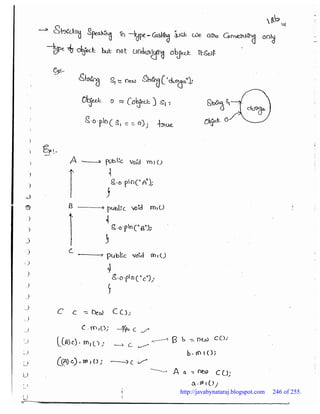 → Strictly Speaking in type-Casting just we are Converting only
type of object but not underlying object itself
Ex:-
String S1 = new String("durga");
Object o = (Object) S1;
String S1
durga
Object o
S.o.pln(S1 == o); true
Ex:-
A → public void m1()
{
S.o.pln("A");
}
B → public void m1()
{
S.o.pln("B");
}
C → public void m1()
{
S.o.pln("C");
}
C c = new C();
c.m1(); → C
((B)c).m1(); → C
B b = new C();
b.m1();
((A)c).m1(); → C
A a = new C();
a.m1();
http://javabynataraj.blogspot.com 246 of 255.